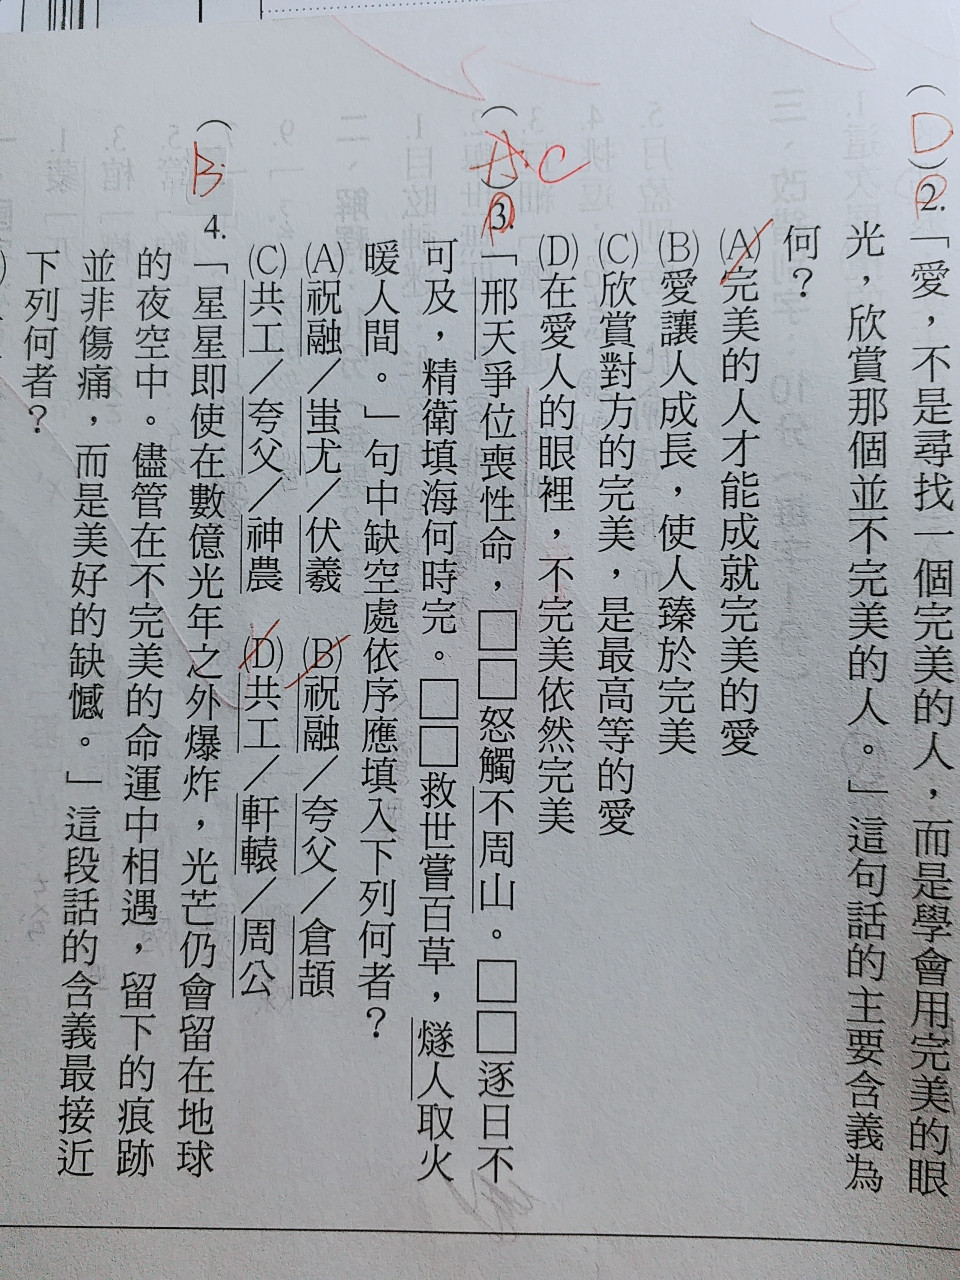 (D)2.「愛，不是尋找一個完美的人，而是學會用完美的眼
光，欣賞那個並不完美的人。」這句話的主要含義為
何？
(A)完美的人才能成就完美的愛
(B)愛讓人成長，使人臻於完美
(C)欣賞對方的完美，是最高等的愛
(D)在愛人的眼裡，不完美依然完美
(A)C 3.「邢天爭位喪性命，□□怒觸不周山。□□逐日不
可及，精衛填海何時完。□□救世嘗百草，燧人取火
暖人間。」句中缺空處依序應填入下列何者？
(A)祝融／蚩尤／伏羲 (B)祝融／夸父／倉頡
(C)共工／夸父／神農 (D)共工／軒轅／周公
(B 4.「星星即使在數億光年之外爆炸，光芒仍會留在地球
的夜空中。儘管在不完美的命運中相遇，留下的痕跡
並非傷痛，而是美好的缺憾。」這段話的含義最接近
下列何者？